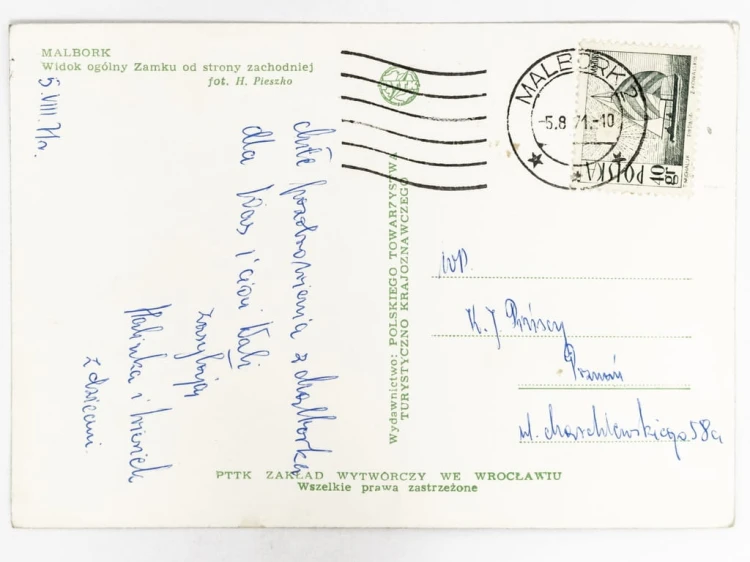 MALBORK
Widok ogólny Zamku od strony zachodniej
fot. H. Pieszko
5.VIII.71r.
pozdrowienia z Malborka
dla Was i cioci Kazi
Halinka i
z dziećmi.
Wydawnictwo: POLSKIEGO TOWARZYSTWA
TURYSTYCZNO KRAJOZNAWCZEGO
MALBORK 2
-5.8 71.-10
POLSKA
40 gr
WP.
K. J.
Poznań
58a
PTTK ZAKŁAD WYTWÓRCZY WE WROCŁAWIU
Wszelkie prawa zastrzeżone